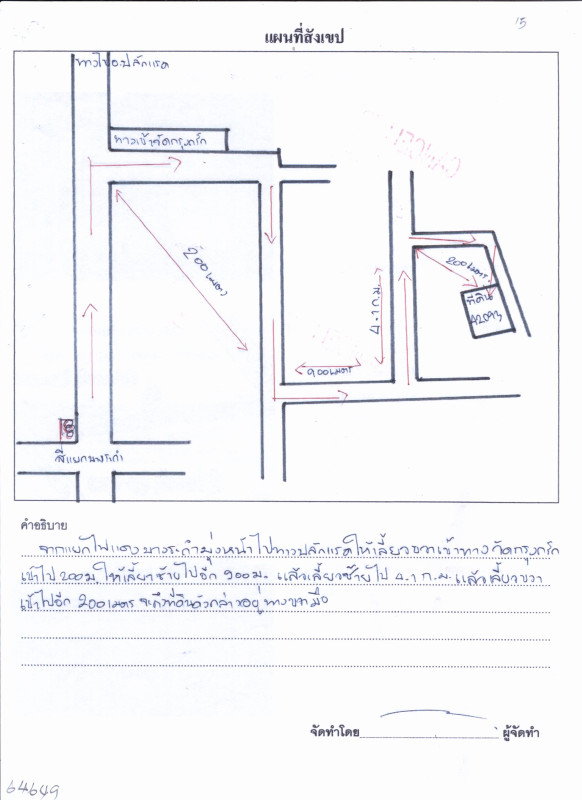 15
แผนที่สังเขป
ทางไปอ.ปลักแรด
ทางเข้าวัดกรุงกรัก
200 เมตร
200 เมตร
4.1 ก.ม.
ที่ดิน
42093
900 เมตร
สี่แยกบางระกำ
คำอธิบาย
จากแยกไฟแดงบางระกำมุ่งหน้าไปทางปลักแรดให้เลี้ยวขวาเข้าทางวัดกรุงกรัก
เข้าไป 200 ม. ให้เลี้ยวซ้ายไปอีก 900 ม. แล้วเลี้ยวซ้ายไป 4.1 ก.ม. แล้วเลี้ยวขวา
เข้าไปอีก 200 เมตร จะถึงที่ดินดังกล่าวอยู่ทางขวามือ
จัดทำโดย ผู้จัดทำ
64649